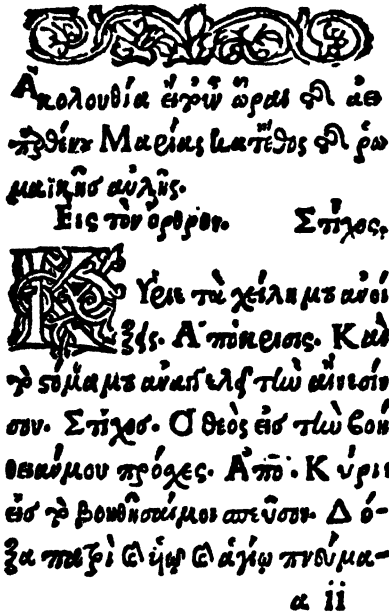 Ἀκολουθία εἰσὶν ὧραι τῆς ἀει
πρθένου Μαρίας κατ' ἔθος τῆς ῥω
μαϊκῆσ αὐλῆς.
Εις τὸν ὄρθρον. Στίχος.
Κύριε τὰ χείλη μου ανοί
ξεις. Απόκρισις. Καὶ
τὸ στόμα μου αναγγελεῖ τὴν αἴνεσίν
σου. Στίχοσ. Ὁ θεὸς εἰσ τὴν βοή
θειανμου πρόσχες. Ἀπο. Κύριε
εἰσ τὸ βοηθῆσαίμοι σπεῦσον. Δό-
ξα πατρὶ καὶ ὑιῷ καὶ ἁγίῳ πνεύμα-
α ii